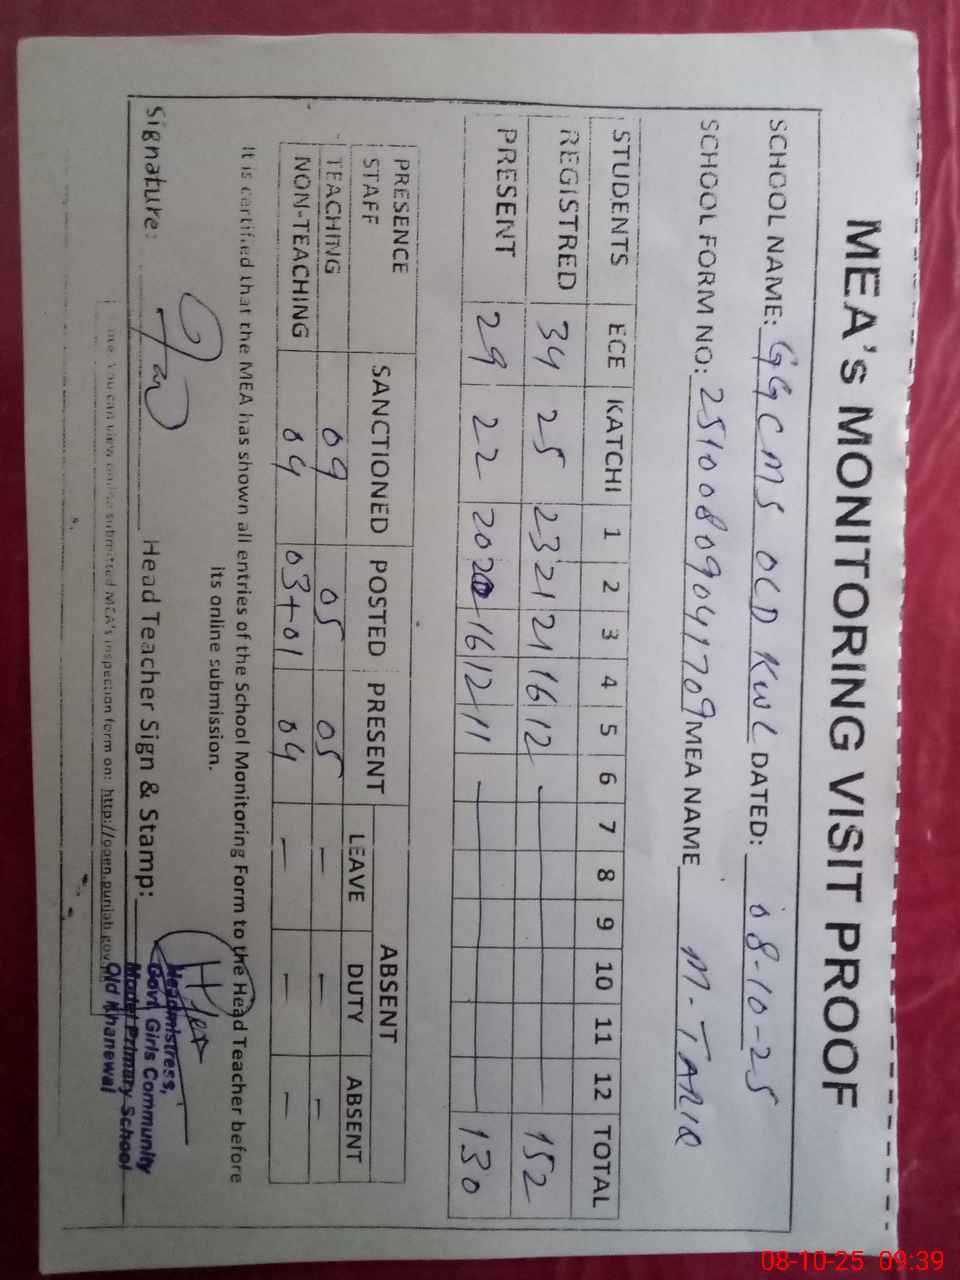 MEA's MONITORING VISIT PROOF
SCHOOL NAME: GGCMS OLD KWL DATED: 08-10-25
SCHOOL FORM NO: 25100809041709 MEA NAME M-TARIQ
STUDENTS ECE KATCHI 1 2 3 4 5 6 7 8 9 10 11 12 TOTAL
REGISTRED 34 25 23 21 21 16 12 - 152
PRESENT 29 22 20 20 16 12 11 - 130
PRESENCE SANCTIONED POSTED PRESENT ABSENT
STAFF LEAVE DUTY ABSENT
TEACHING 09 05 05 - - -
NON-TEACHING 04 03+01 04 - - -
It is certified that the MEA has shown all entries of the School Monitoring Form to the Head Teacher before
its online submission.
Signature: Head Teacher Sign & Stamp:
Headmistress,
Govt Girls Community
Model Primary School
Old Khanewal
You can view online submitted MEA's inspection form on: http://open.punjab.gov
08-10-25 09:39